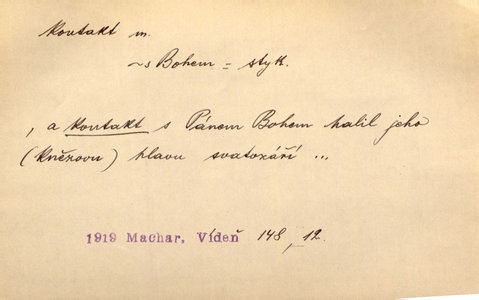 kontakt m.
~ s Bohem = styk.
, a kontakt s Pánem Bohem halil jeho
(knězovu) hlavu svatozáří ...
1919 Machar, Vídeň 148, 12.